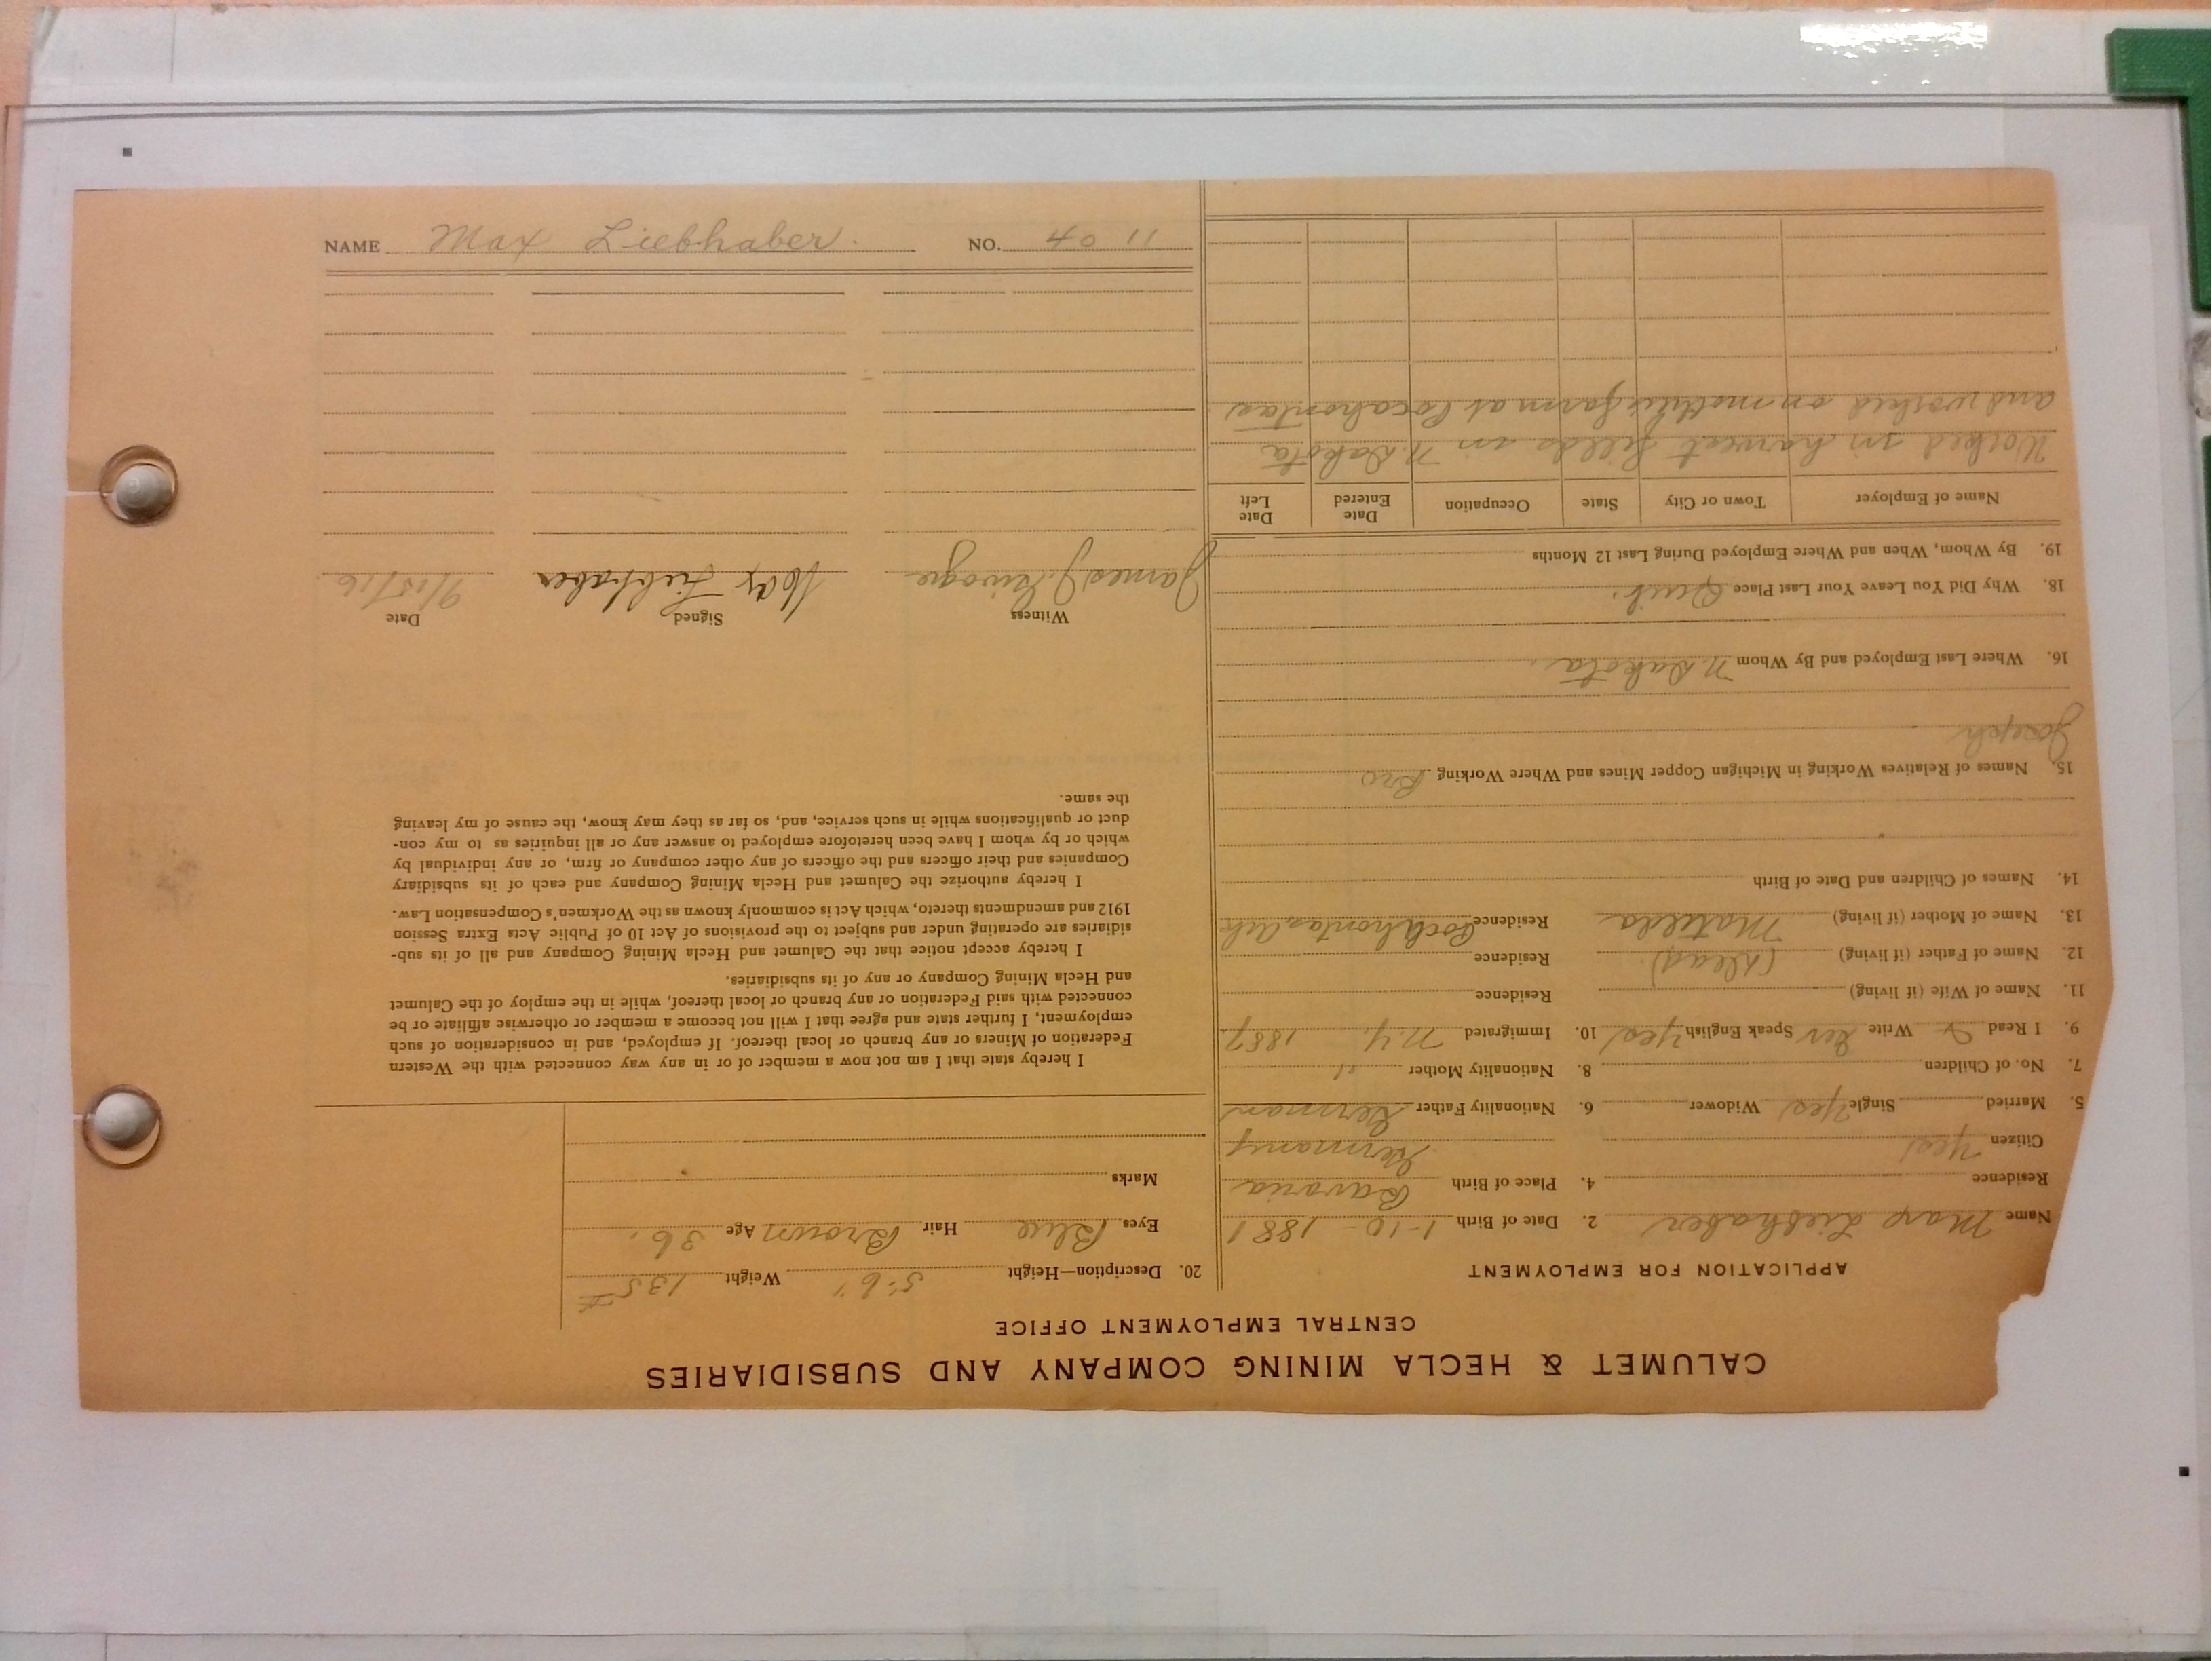 NAME Max Liebhaber. NO. 40 11
CALUMET & HECLA MINING COMPANY AND SUBSIDIARIES
CENTRAL EMPLOYMENT OFFICE
APPLICATION FOR EMPLOYMENT
Name Max Liebhaber 2. Date of Birth 1-10-1881
Residence 4. Place of Birth Bavaria
Citizen Yes Germany
5. Married Single Yes Widower 6. Nationality Father German
7. No. of Children 8. Nationality Mother
9. I Read Write Ger Speak English Yes 10. Immigrated N.Y. 1887.
11. Name of Wife (if living) Residence
12. Name of Father (if living) (dead) Residence
13. Name of Mother (if living) Matilda Residence Pochhontas, Ark
14. Names of Children and Date of Birth
15. Names of Relatives Working in Michigan Copper Mines and Where Working Bro
Joseph
16. Where Last Employed and By Whom N. Dakota.
18. Why Did You Leave Your Last Place Quit.
19. By Whom, When and Where Employed During Last 12 Months
Name of Employer Town or City State Occupation Date Entered Date Left
Worked in harvest fields in N. Dakota
and worked on mothers farm at Pocahontas
20. Description—Height 5'6" Weight 135#
Eyes Blue Hair Brown Age 36.
Marks
I hereby state that I am not now a member of or in any way connected with the Western
Federation of Miners or any branch or local thereof. If employed, and in consideration of such
employment, I further state and agree that I will not become a member or otherwise affiliate or be
connected with said Federation or any branch or local thereof, while in the employ of the Calumet
and Hecla Mining Company or any of its subsidiaries.
I hereby accept notice that the Calumet and Hecla Mining Company and all of its sub-
sidiaries are operating under and subject to the provisions of Act 10 of Public Acts Extra Session
1912 and amendments thereto, which Act is commonly known as the Workmen's Compensation Law.
I hereby authorize the Calumet and Hecla Mining Company and each of its subsidiary
Companies and their officers and the officers of any other company or firm, or any individual by
which or by whom I have been heretofore employed to answer any or all inquiries as to my con-
duct or qualifications while in such service, and, so far as they may know, the cause of my leaving
the same.
Witness Signed Date
James J. Max Liebhaber 9/15/16.